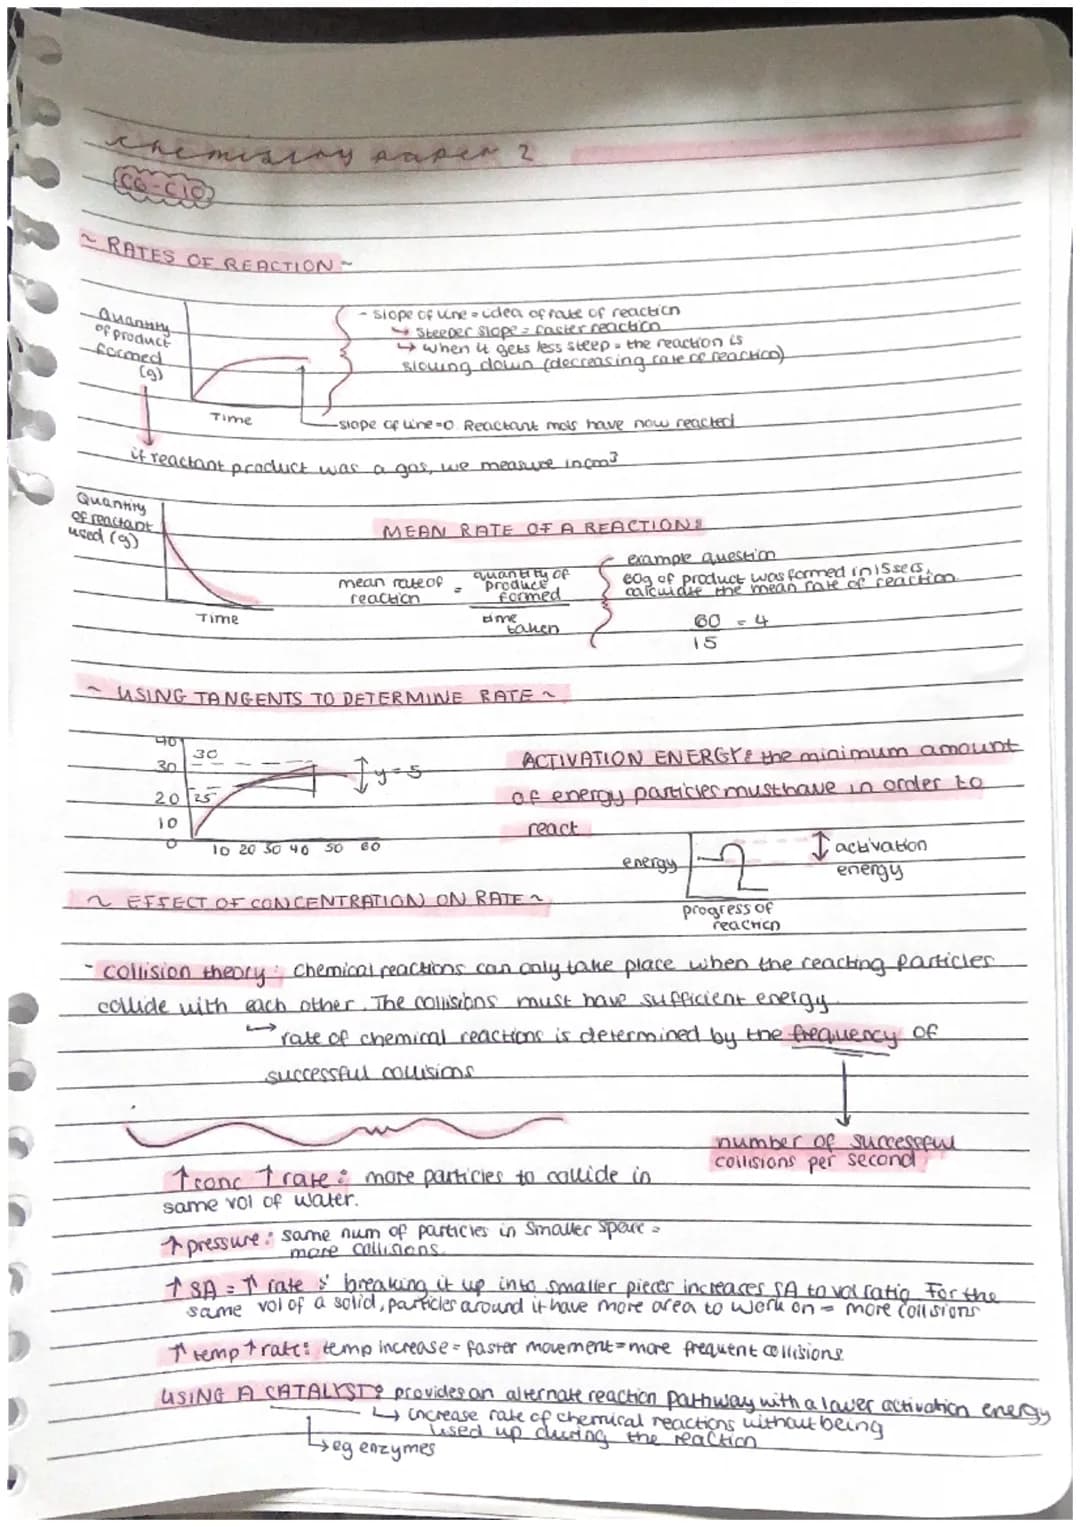 chemistry paper 2
C6-C10
~ RATES OF REACTION ~
Quantity
of product
formed
(g)
Time
- slope of line = idea of rate of reaction
↳ steeper slope = faster reaction
↳ when it gets less steep = the reaction is
slowing down (decreasing rate of reaction)
-slope of line=0. Reactant mols have now reacted
if reactant product was a gas, we measure in cm³
Quantity
of reactant
used (g)
Time
MEAN RATE OF A REACTION:
mean rate of
reaction
=
quantity of
product
formed
time
taken
example question
60g of product was formed in 15 secs.
calculate the mean rate of reaction
60 = 4
15
~ USING TANGENTS TO DETERMINE RATE ~
40
30
20
10
0
30
25
y = 5
10 20 30 40 50 60
ACTIVATION ENERGY: the minimum amount
of energy particles must have in order to
react
energy
progress of
reaction
activation
energy
~ EFFECT OF CONCENTRATION ON RATE ~
- collision theory: chemical reactions can only take place when the reacting particles
collide with each other. The collisions must have sufficient energy
↳ rate of chemical reactions is determined by the frequency of
successful collisions
number of successful
collisions per second
↑conc ↑rate: more particles to collide in
same vol of water.
↑pressure: same num of particles in smaller space =
more collisions.
↑ SA = ↑ rate: breaking it up into smaller pieces increases SA to vol ratio. For the
same vol of a solid, particles around it have more area to work on = more collisions
↑ temp ↑ rate: temp increase = faster movement = more frequent collisions
USING A CATALYST: provides an alternate reaction pathway with a lower activation energy
↳ increase rate of chemical reactions without being
used up during the reaction
↳ eg enzymes